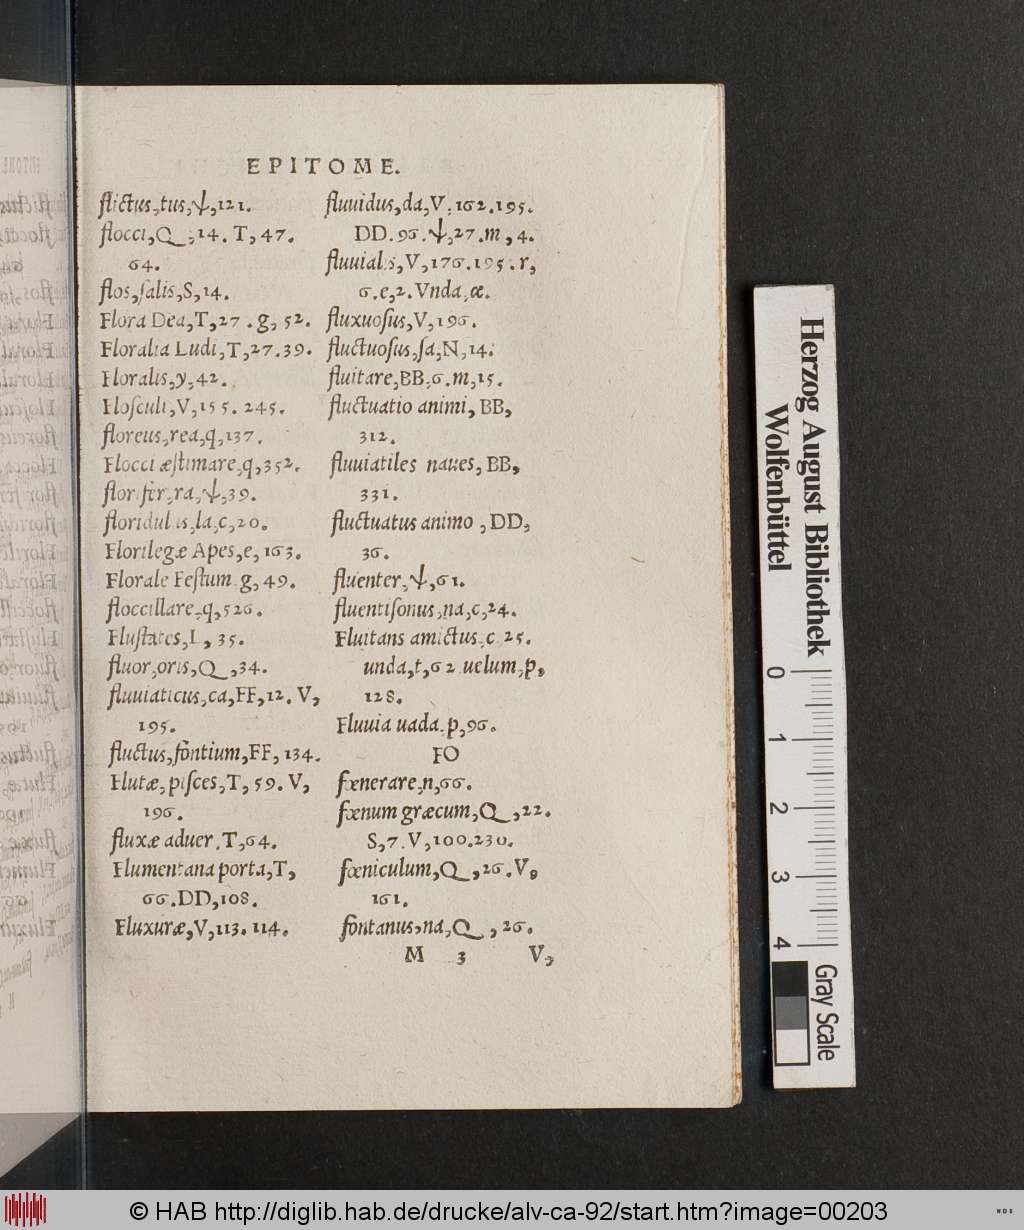 EPITOME.
flictus,tus,ψ,121.
flocci,Q,14. T,47.
64.
flos,ſalis,S,14.
Flora Dea,T,27.g,52.
Floralia Ludi,T,27.39.
Floralis,y,42.
Floſculi,V,155. 245.
floreus,rea,q,137.
Flocci æſtimare,q,352.
florifer,ra,ψ,39.
floridulus,la,c,20.
Florilegæ Apes,e,163.
Florale Feſtum.g,49.
floccillare,q,526.
Fluſtates,L,35.
fluor,oris,Q,34.
fluuiaticus,ca,FF,12. V,
195.
fluctus,fontium,FF,134.
Flutæ,piſces,T,59. V,
196.
fluxæ aduer.T,64.
Flumentana porta,T,
66.DD,108.
Fluxuræ,V,113.114.
fluuidus,da,V,162.195.
DD.96.ψ,27.m,4.
fluuialis,V,176.195.r,
6.e,2.Vnda,æ.
fluxuoſus,V,196.
fluctuoſus,ſa,N,14.
fluitare,BB,6.m,15.
fluctuatio animi,BB,
312.
fluuiatiles naues,BB,
331.
fluctuatus animo,DD,
36.
fluenter,ψ,61.
fluentiſonus,na,c,24.
Fluitans amictus,c.25.
unda,t,62.uelum,p,
128.
Fluuia uada.p,96.
FO
fœnerare,n,66.
fœnum græcum,Q,22.
S,7.V,100.230.
fœniculum,Q,26.V,
161.
fontanus,na,Q,26.
M 3 V,
Herzog August Bibliothek
Wolfenbüttel
0 1 2 3 4
Gray Scale
© HAB http://diglib.hab.de/drucke/alv-ca-92/start.htm?image=00203